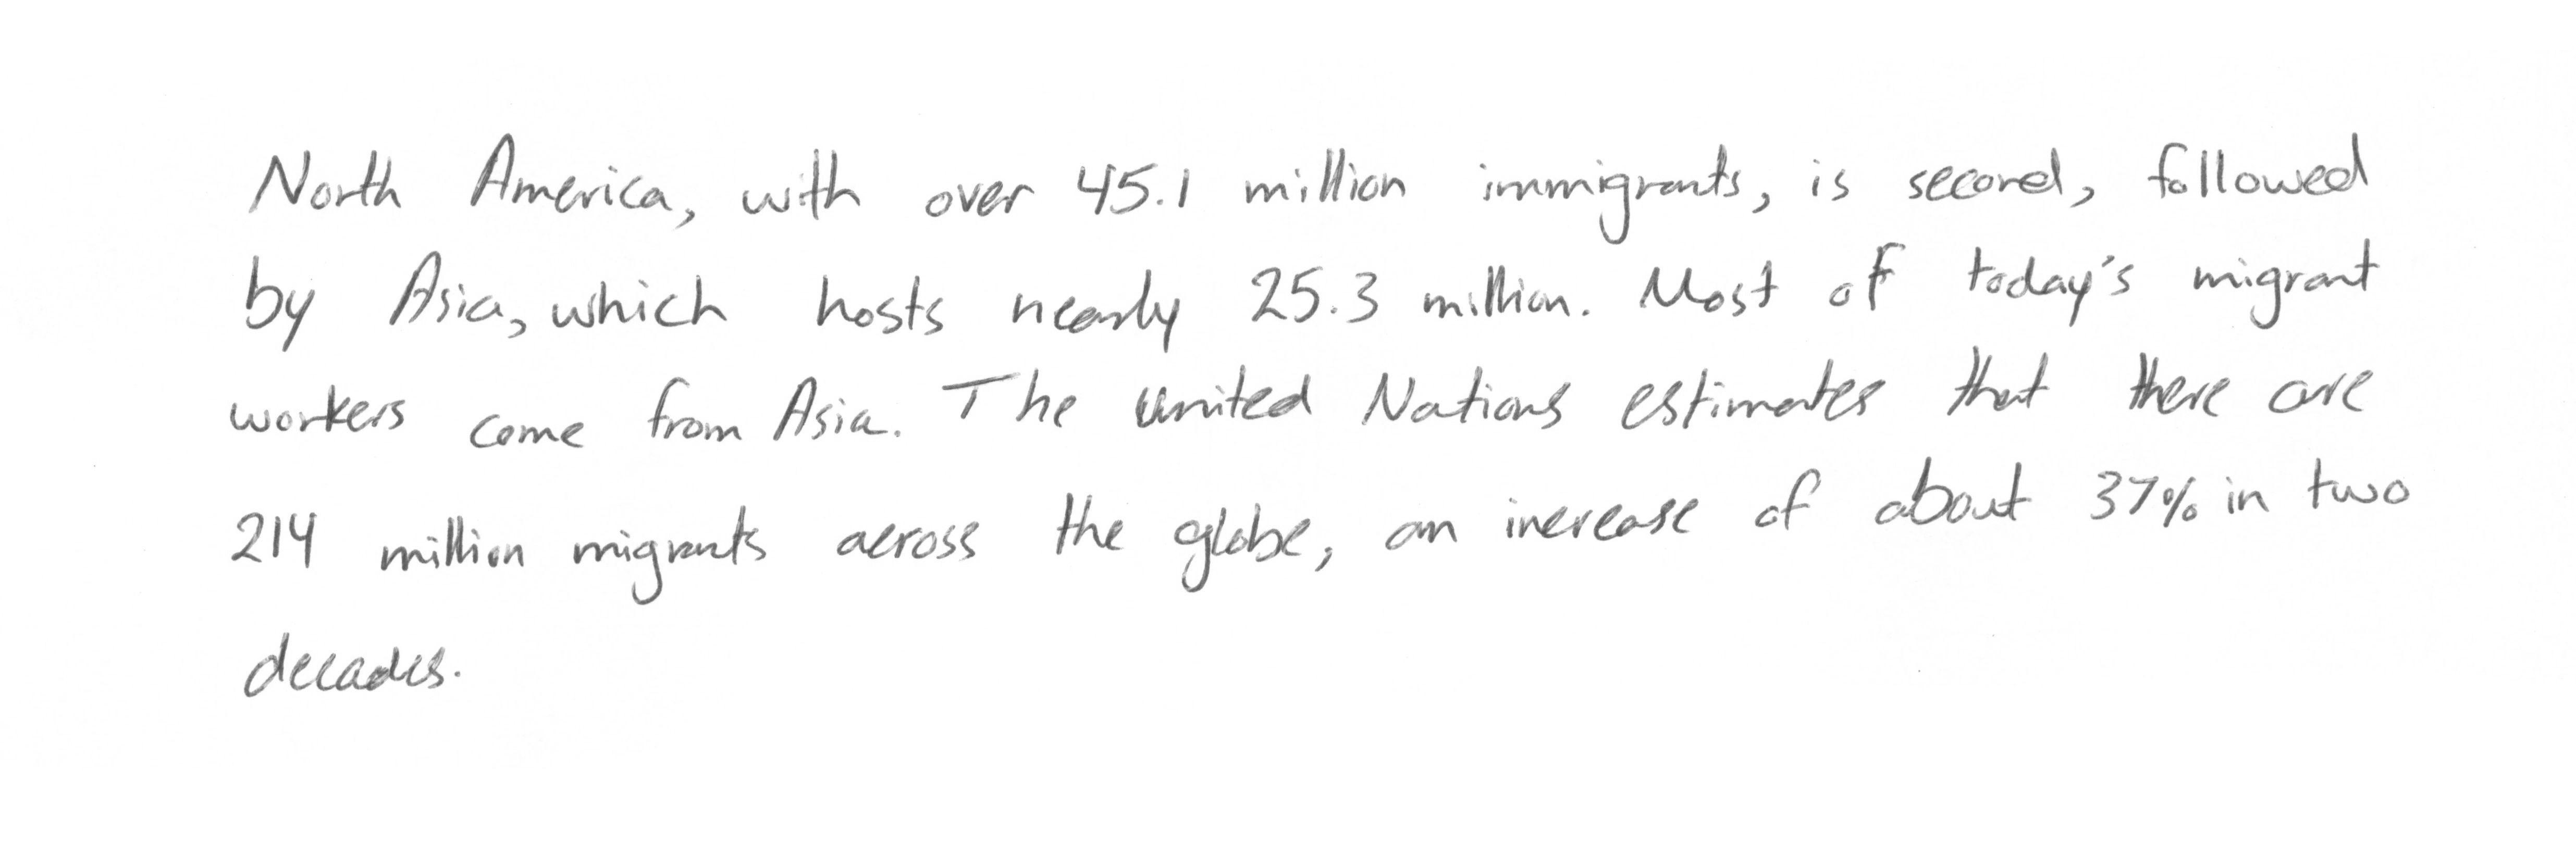 North America, with over 45.1 million immigrants, is second, followed
by Asia, which hosts nearly 25.3 million. Most of today's migrant
workers come from Asia. The United Nations estimates that there are
214 million migrants across the globe, an increase of about 37% in two
decades.